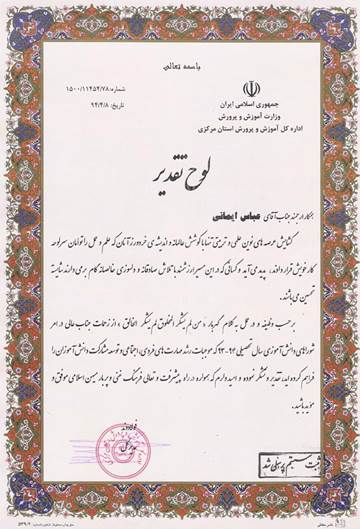 باسمه تعالی
شماره: ۱۵۰۰/۱۱۴۵۴/۷۸
تاریخ: ۹۴/۴/۸
جمهوری اسلامی ایران
وزارت آموزش و پرورش
اداره کل آموزش و پرورش استان مرکزی
لوح تقدیر
همکار ارجمند جناب آقای عباس ایمانی
گشایش عرصه های نوین علمی و تربیتی تنها با کوشش عالمانه و اندیشه ی خردورز آنان که علم و عمل را توامان سرلوحه
کار خویش قرار داده اند، پدید می آید و کسانی که در این مسیر ارزشمند با تلاش صادقانه و دلسوزی خالصانه گام برمی دارند شایسته
تحسین می باشند.
بر حسب وظیفه و در عمل به کلام گهربار، من لم یشکر المخلوق لم یشکر الخالق، از زحمات جناب عالی در امر
شوراهای دانش آموزی سال تحصیلی ۹۴-۹۳ که موجبات رشد مهارت های فردی، اجتماعی و توسعه مشارکت دانش آموزان را
فراهم کرده اید، تقدیر و تشکر نموده و امید وارم که همواره در راه پیشرفت و تعالی فرهنگ غنی و پربار میهن اسلامی موفق و
موید باشید.
ثبت سیستم پرسنلی شد